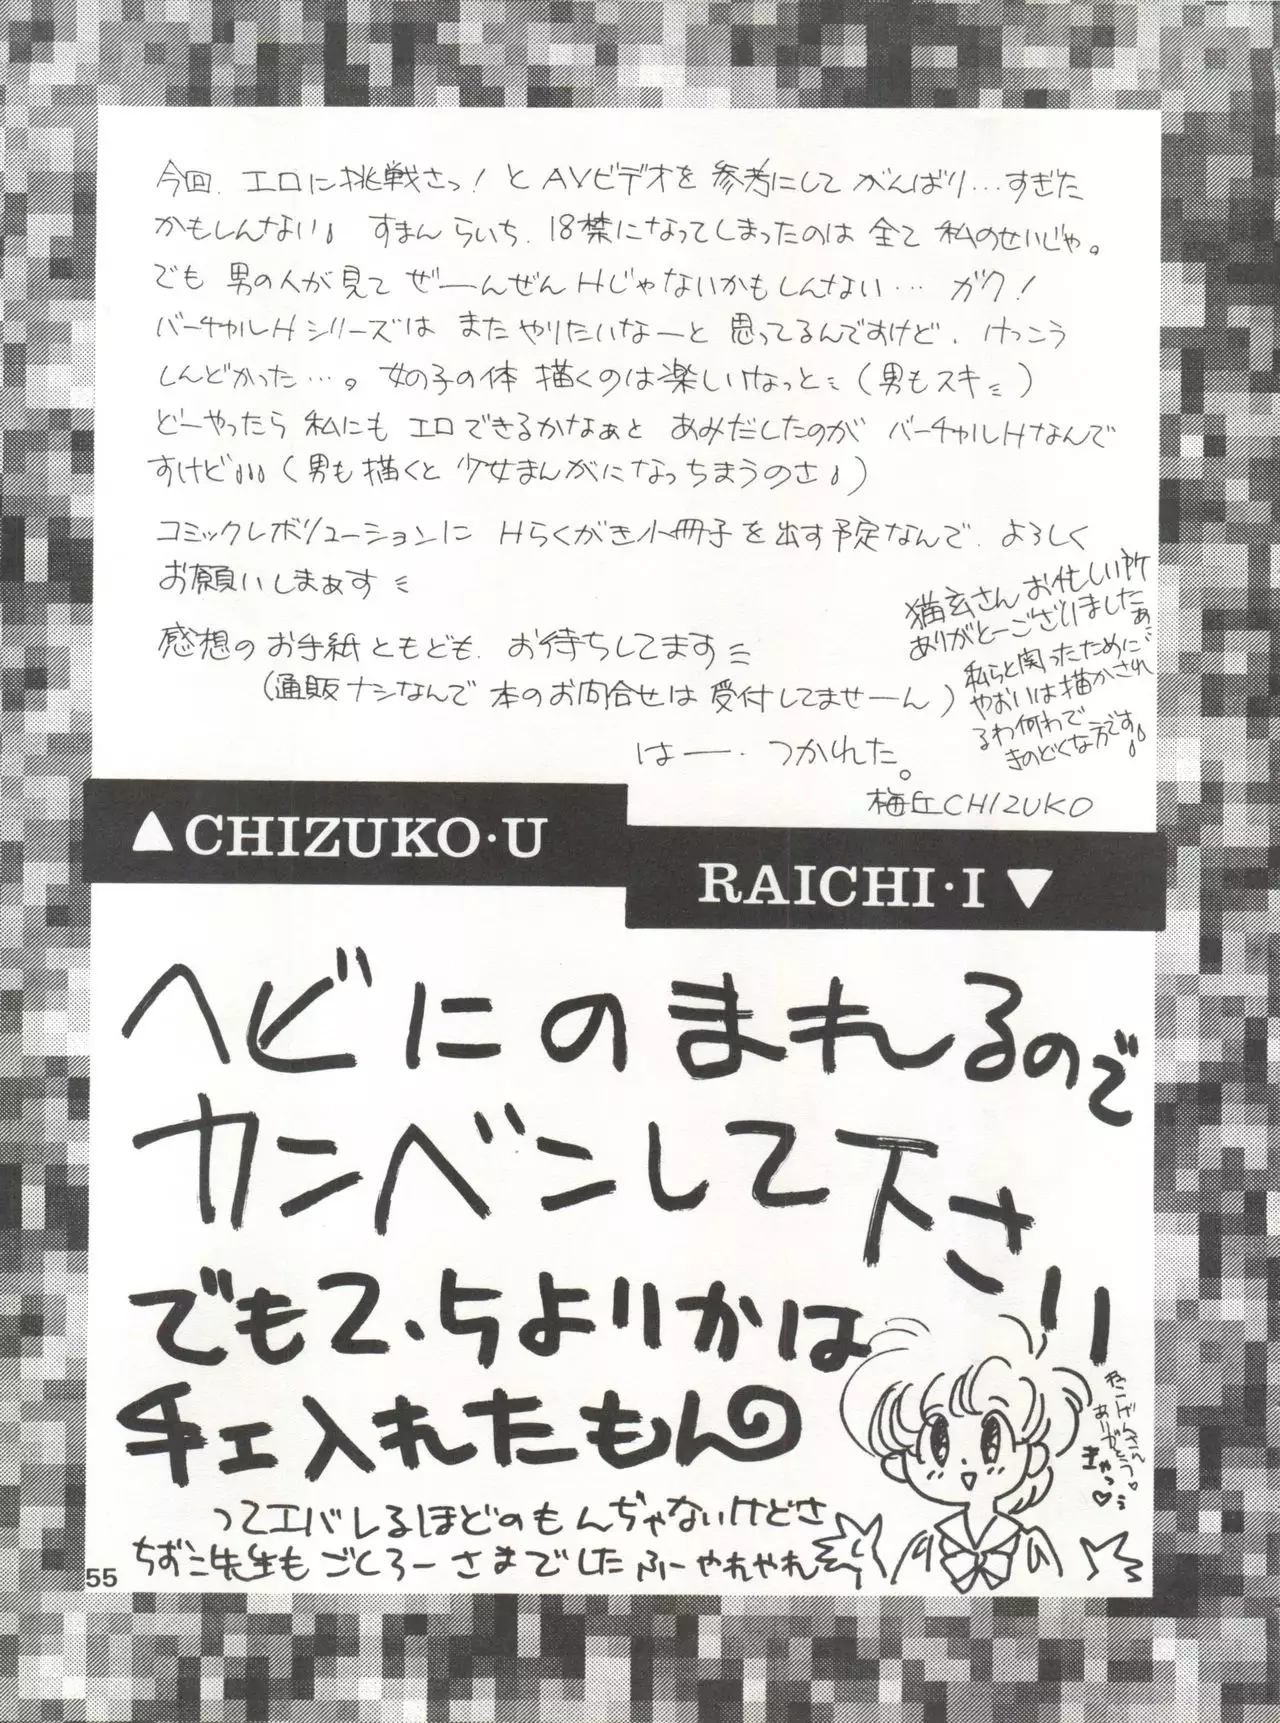 今回、エロに挑戦さっ！とAVビデオを参考にしてがんばり…すぎた
かもしんない すまんらいち、18禁になってしまったのは全て私のせいじゃ。
でも男の人が見てぜーんぜんHじゃないかもしんない… ガク！
バーチャルHシリーズはまたやりたいなーと思ってるんですけど、けっこう
しんどかった…。女の子の体描くのは楽しいなっと（男もスキ）
どーやったら私にもエロできるかなぁとあみだしたのがバーチャルHなんで
すけど（男も描くと少女まんがになっちまうのさ）
コミックレボリューションにHらくがき小冊子を出す予定なんで、よろしく
お願いしまぁす
感想のお手紙ともども、お待ちしてます
（通販ナシなんで本のお問合せは受付してませーん）
はー、つかれた。
梅丘CHIZUKO
猫玄さんお忙しい所
ありがとーございましたぁ
私らと関ったために
やおいは描かされ
るわ何わで
きのどくな方です
▲CHIZUKO・U
RAICHI・I▼
ヘビにのまれるので
カンベンして下さい
でも2、ちょりかは
チェ入れたもん
ってエバレるほどのもんぢゃないけどさ
ちずこ先生もごくろーさまでした ふーやれやれ
ねこげんさん
ありがとう♡
きゃっ♡
55